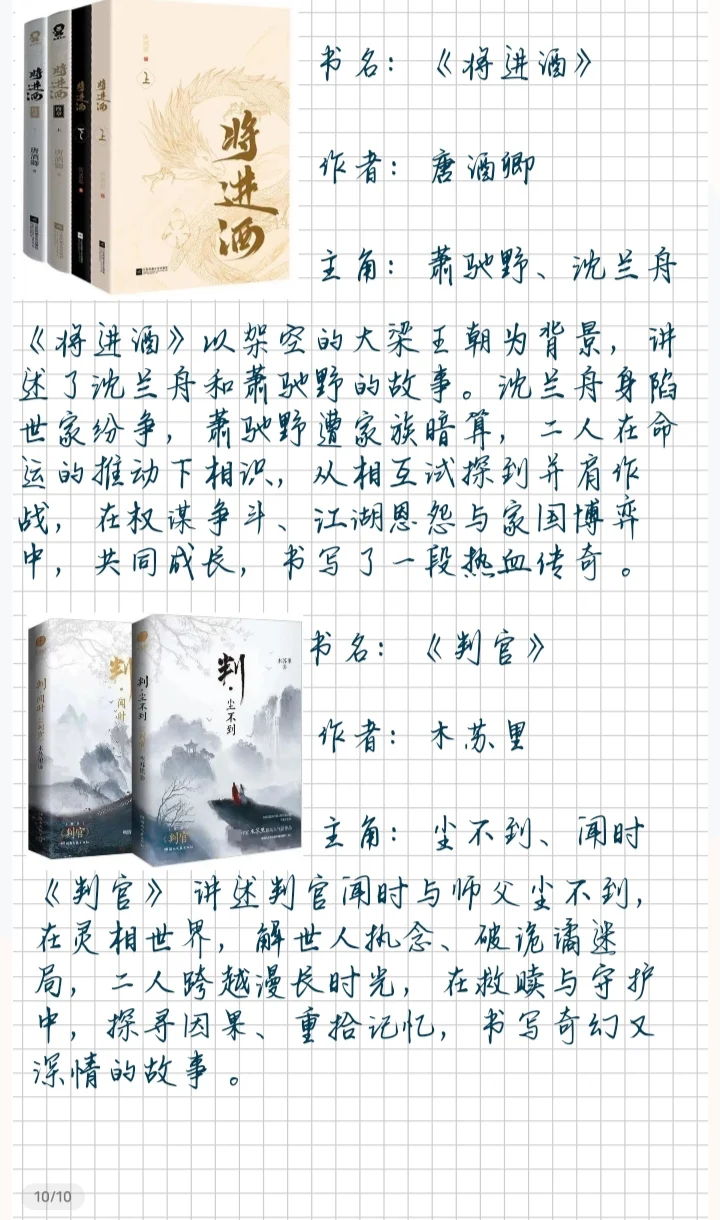 将进酒
唐酒卿
上
将进酒
唐酒卿
将进酒
下
将进酒
上
上
将进酒
书名：《将进酒》
作者：唐酒卿
主角：萧驰野、沈兰舟
《将进酒》以架空的大梁王朝为背景，讲
述了沈兰舟和萧驰野的故事。沈兰舟身陷
世家纷争，萧驰野遭家族暗算，二人在命
运的推动下相识，从相互试探到并肩作
战，在权谋争斗、江湖恩怨与家国博弈
中，共同成长，书写了一段热血传奇。
判·闻时
木苏里
判
·闻时
《判官》
判·尘不到
木苏里
判·尘不到
木苏里
《判官》
书名：《判官》
作者：木苏里
主角：尘不到、闻时
《判官》讲述判官闻时与师父尘不到，
在灵相世界，解世人执念、破诡谲迷
局，二人跨越漫长时光，在救赎与守护
中，探寻因果、重拾记忆，书写奇幻又
深情的故事。
10/10